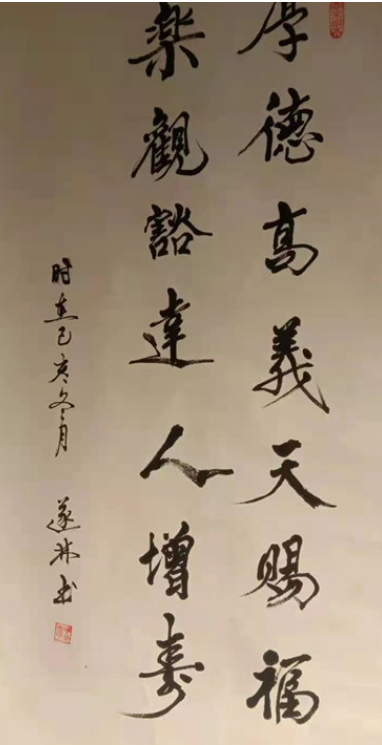 厚德高義天赐福
樂觀豁達人增寿
时在己亥冬月 遂林书